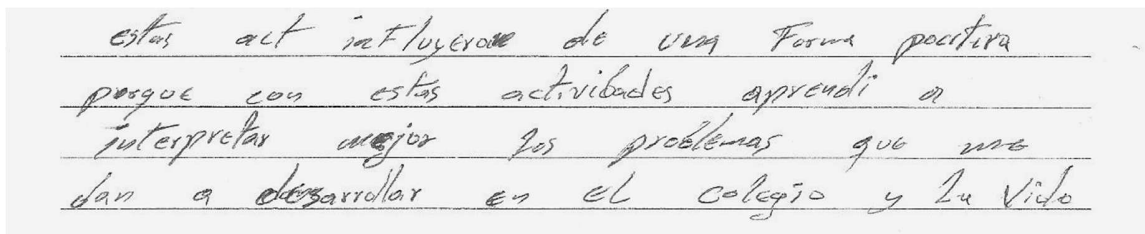 estas act influyeron de una Forma pocitiva
porque con estas actividades aprendi a
interpretar mejor los problemas que me
dan a desarrollar en el colegio y La Vida